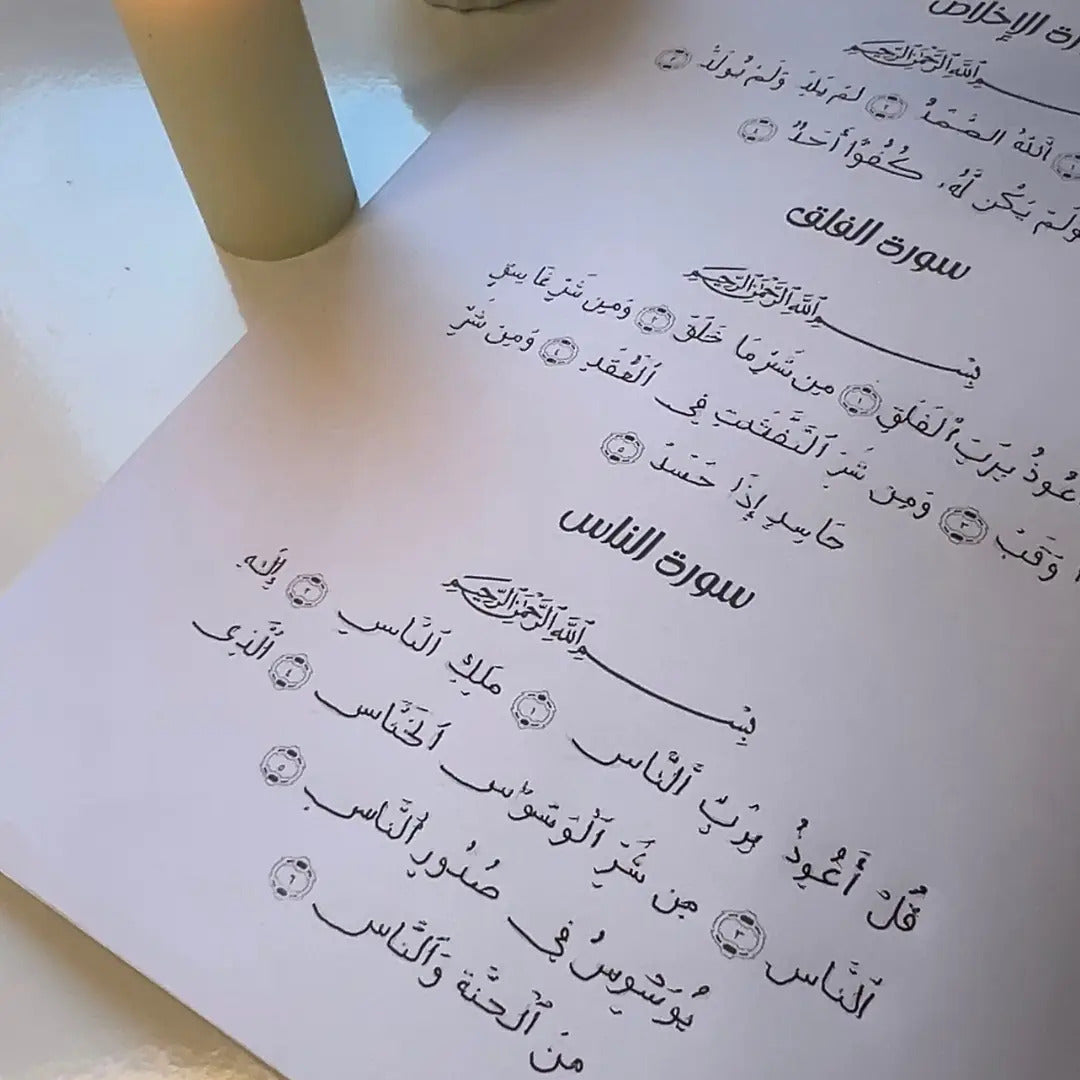 الإخلاص
بِسْمِ ٱللَّهِ ٱلرَّحْمَٰنِ ٱلرَّحِيمِ
١ ٱللَّهُ ٱلصَّمَدُ ٢ لَمْ يَلِدْ وَلَمْ يُولَدْ ٣
وَلَمْ يَكُن لَّهُۥ كُفُوًا أَحَدٌ ٤
سورة الفلق
بِسْمِ ٱللَّهِ ٱلرَّحْمَٰنِ ٱلرَّحِيمِ
أَعُوذُ بِرَبِّ ٱلْفَلَقِ ١ مِن شَرِّ مَا خَلَقَ ٢ وَمِن شَرِّ غَاسِقٍ
وَقَبَ ٣ وَمِن شَرِّ ٱلنَّفَّٰثَٰتِ فِى ٱلْعُقَدِ ٤ وَمِن شَرِّ
حَاسِدٍ إِذَا حَسَدَ ٥
سورة الناس
بِسْمِ ٱللَّهِ ٱلرَّحْمَٰنِ ٱلرَّحِيمِ
قُلْ أَعُوذُ بِرَبِّ ٱلنَّاسِ ١ مَلِكِ ٱلنَّاسِ ٢ إِلَٰهِ
ٱلنَّاسِ ٣ مِن شَرِّ ٱلْوَسْوَاسِ ٱلْخَنَّاسِ ٤ ٱلَّذِى
يُوَسْوِسُ فِى صُدُورِ ٱلنَّاسِ ٥
مِنَ ٱلْجِنَّةِ وَٱلنَّاسِ ٦